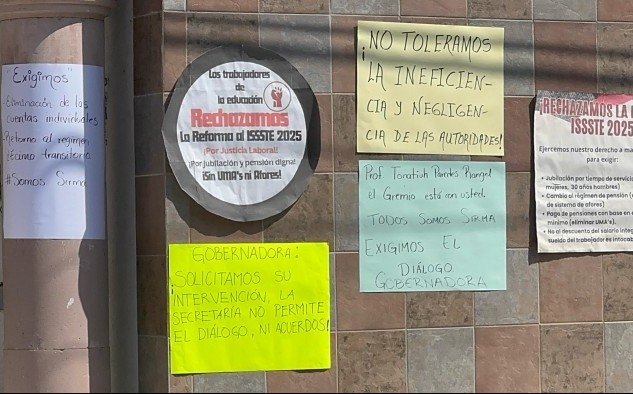 "Exigimos"
-Eliminación de las
cuentas individuales
-Retorno al régimen
décimo transitorio
#Somos Sirma
Los trabajadores
de la educación
Rechazamos
La Reforma al ISSSTE 2025
¡Por Justicia Laboral!
¡Por jubilación y pensión digna!
¡Sin UMA's ni Afores!
GOBERNADORA:
¡SOLICITAMOS SU
INTERVENCIÓN, LA
SECRETARÍA NO PERMITE
EL DIÁLOGO, NI ACUERDOS!
¡NO TOLERAMOS
LA INEFICIEN-
CIA Y NEGLIGEN-
CIA DE LAS AUTORIDADES!
Prof. Paredes Rangel
el Gremio está con usted.
TODOS SOMOS SIRMA
EXIGIMOS EL
DIÁLOGO
GOBERNADORA
¡RECHAZAMOS LA
ISSSTE 2025
Ejercemos nuestro derecho a
para exigir:
• Jubilación por tiempo de servicio
mujeres, 30 años hombres)
• Cambio al régimen de pensión
de sistema de afores)
• Pago de pensiones con base en
mínimo (eliminar UMA's).
• No al descuento del salario
sueldo del trabajador es